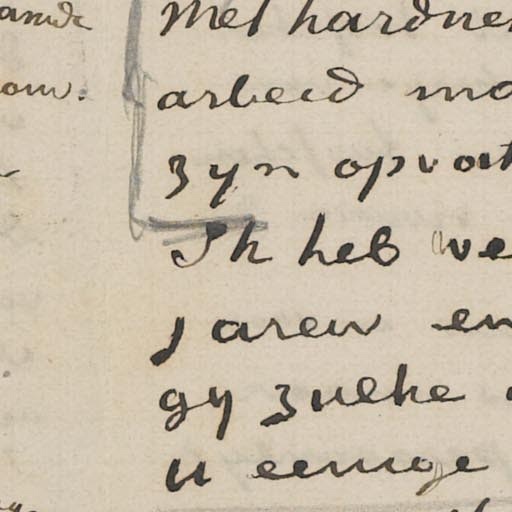 met hardne
arbeid mo
zyn opvat
Ik heb ve
jaren en
gy zulke
u eenige